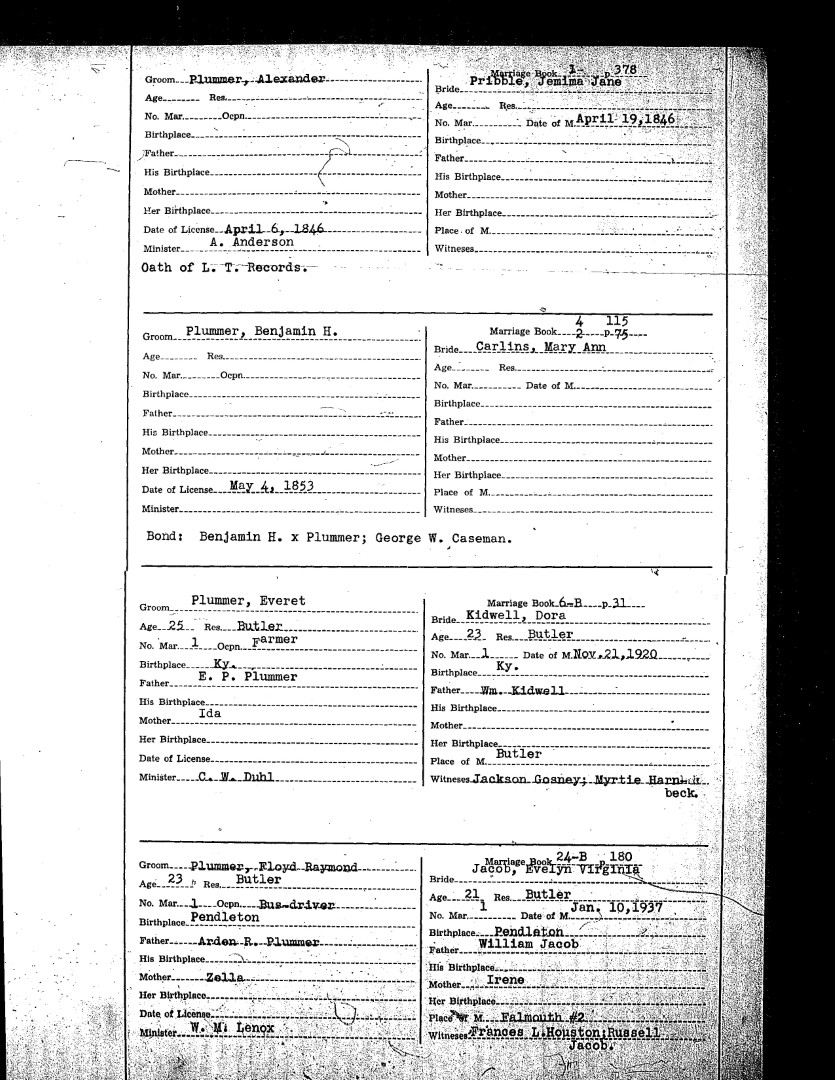 Groom Plummer, Alexander
Age Res.
No. Mar. Ocpn.
Birthplace
Father
His Birthplace
Mother
Her Birthplace
Date of License April 6, 1846
Minister A. Anderson
Marriage Book 1 p. 378
Bride Pribble, Jemima Jane
Age Res.
No. Mar. Date of M. April 19,1846
Birthplace
Father
His Birthplace
Mother
Her Birthplace
Place of M.
Witnesses
Oath of L. T. Records.
Groom Plummer, Benjamin H.
Age Res.
No. Mar. Ocpn.
Birthplace
Father
His Birthplace
Mother
Her Birthplace
Date of License May 4, 1853
Minister
4 115
Marriage Book 2 p. 75
Bride Carlins, Mary Ann
Age Res.
No. Mar. Date of M.
Birthplace
Father
His Birthplace
Mother
Her Birthplace
Place of M.
Witnesses
Bond: Benjamin H. x Plummer; George W. Caseman.
Groom Plummer, Everet
Age 25 Res. Butler
No. Mar. 1 Ocpn. Farmer
Birthplace Ky.
Father E. P. Plummer
His Birthplace
Mother Ida
Her Birthplace
Date of License
Minister C. W. Duhl
Marriage Book 6-B p. 31
Bride Kidwell, Dora
Age 23 Res. Butler
No. Mar. 1 Date of M. Nov.21,1920
Birthplace Ky.
Father Wm. Kidwell
His Birthplace
Mother
Her Birthplace
Place of M. Butler
Witnesses Jackson Gosney; Myrtie
beck.
Groom Plummer, Floyd Raymond
Age 23 Res. Butler
No. Mar. 1 Ocpn. Bus-driver
Birthplace Pendleton
Father Arden R. Plummer
His Birthplace
Mother Zella
Her Birthplace
Date of License
Minister W. M. Lenox
Marriage Book 24-B p. 180
Bride Jacob, Evelyn Virginia
Age 21 Res. Butler
No. Mar. 1 Date of M. Jan. 10,1937
Birthplace Pendleton
Father William Jacob
His Birthplace
Mother Irene
Her Birthplace
Place of M. Falmouth #2
Witnesses Frances L.Houston;Russell
Jacob.